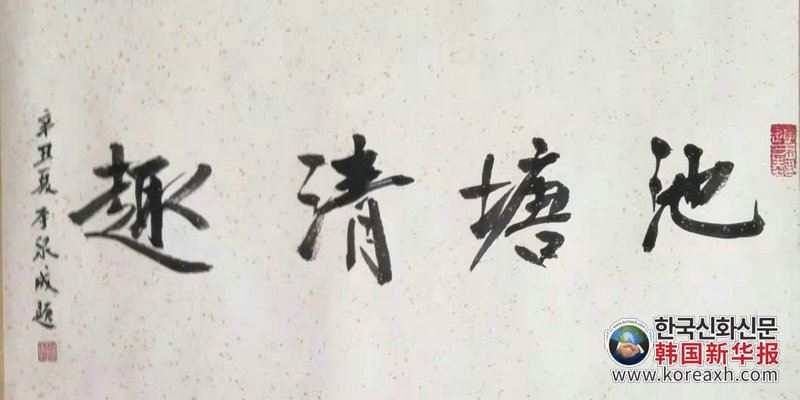 池塘清趣
辛丑夏 李泉成题
한국신화신문
韩国新华报
www.koreaxh.com